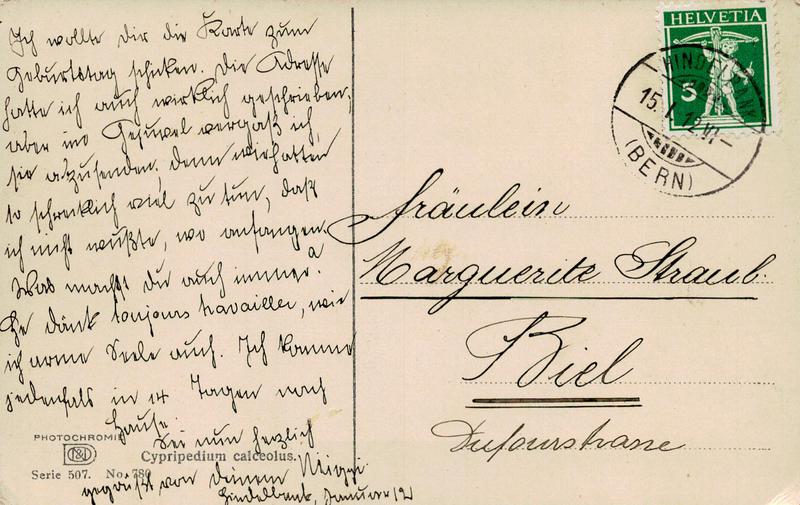 Ich wollte dir die Karte zum
Geburtstag schicken. Die Adresse
hatte ich auch wirklich geschrieben,
aber im vergaß ich,
sie abzusenden. Denn wir hatten
so schrecklich viel zu tun, daß
ich nicht wußte, wo anfangen.
Was machst du auch immer?
toujours travailler, wie
ich arme Seele auch. Ich komme
jedenfalls in 14 Tagen nach
Hause.
Sei nun herzlich
gegrüßt von deinem Miggi
Hindelbank, Januar 12
PHOTOCHROMIE
Cypripedium calceolus.
Serie 507. No. 780
HELVETIA
5
HINDELBANK
15. I. 12. VI-
(BERN)
Fräulein
Marguerite Straub.
Biel
Dufourstrasse